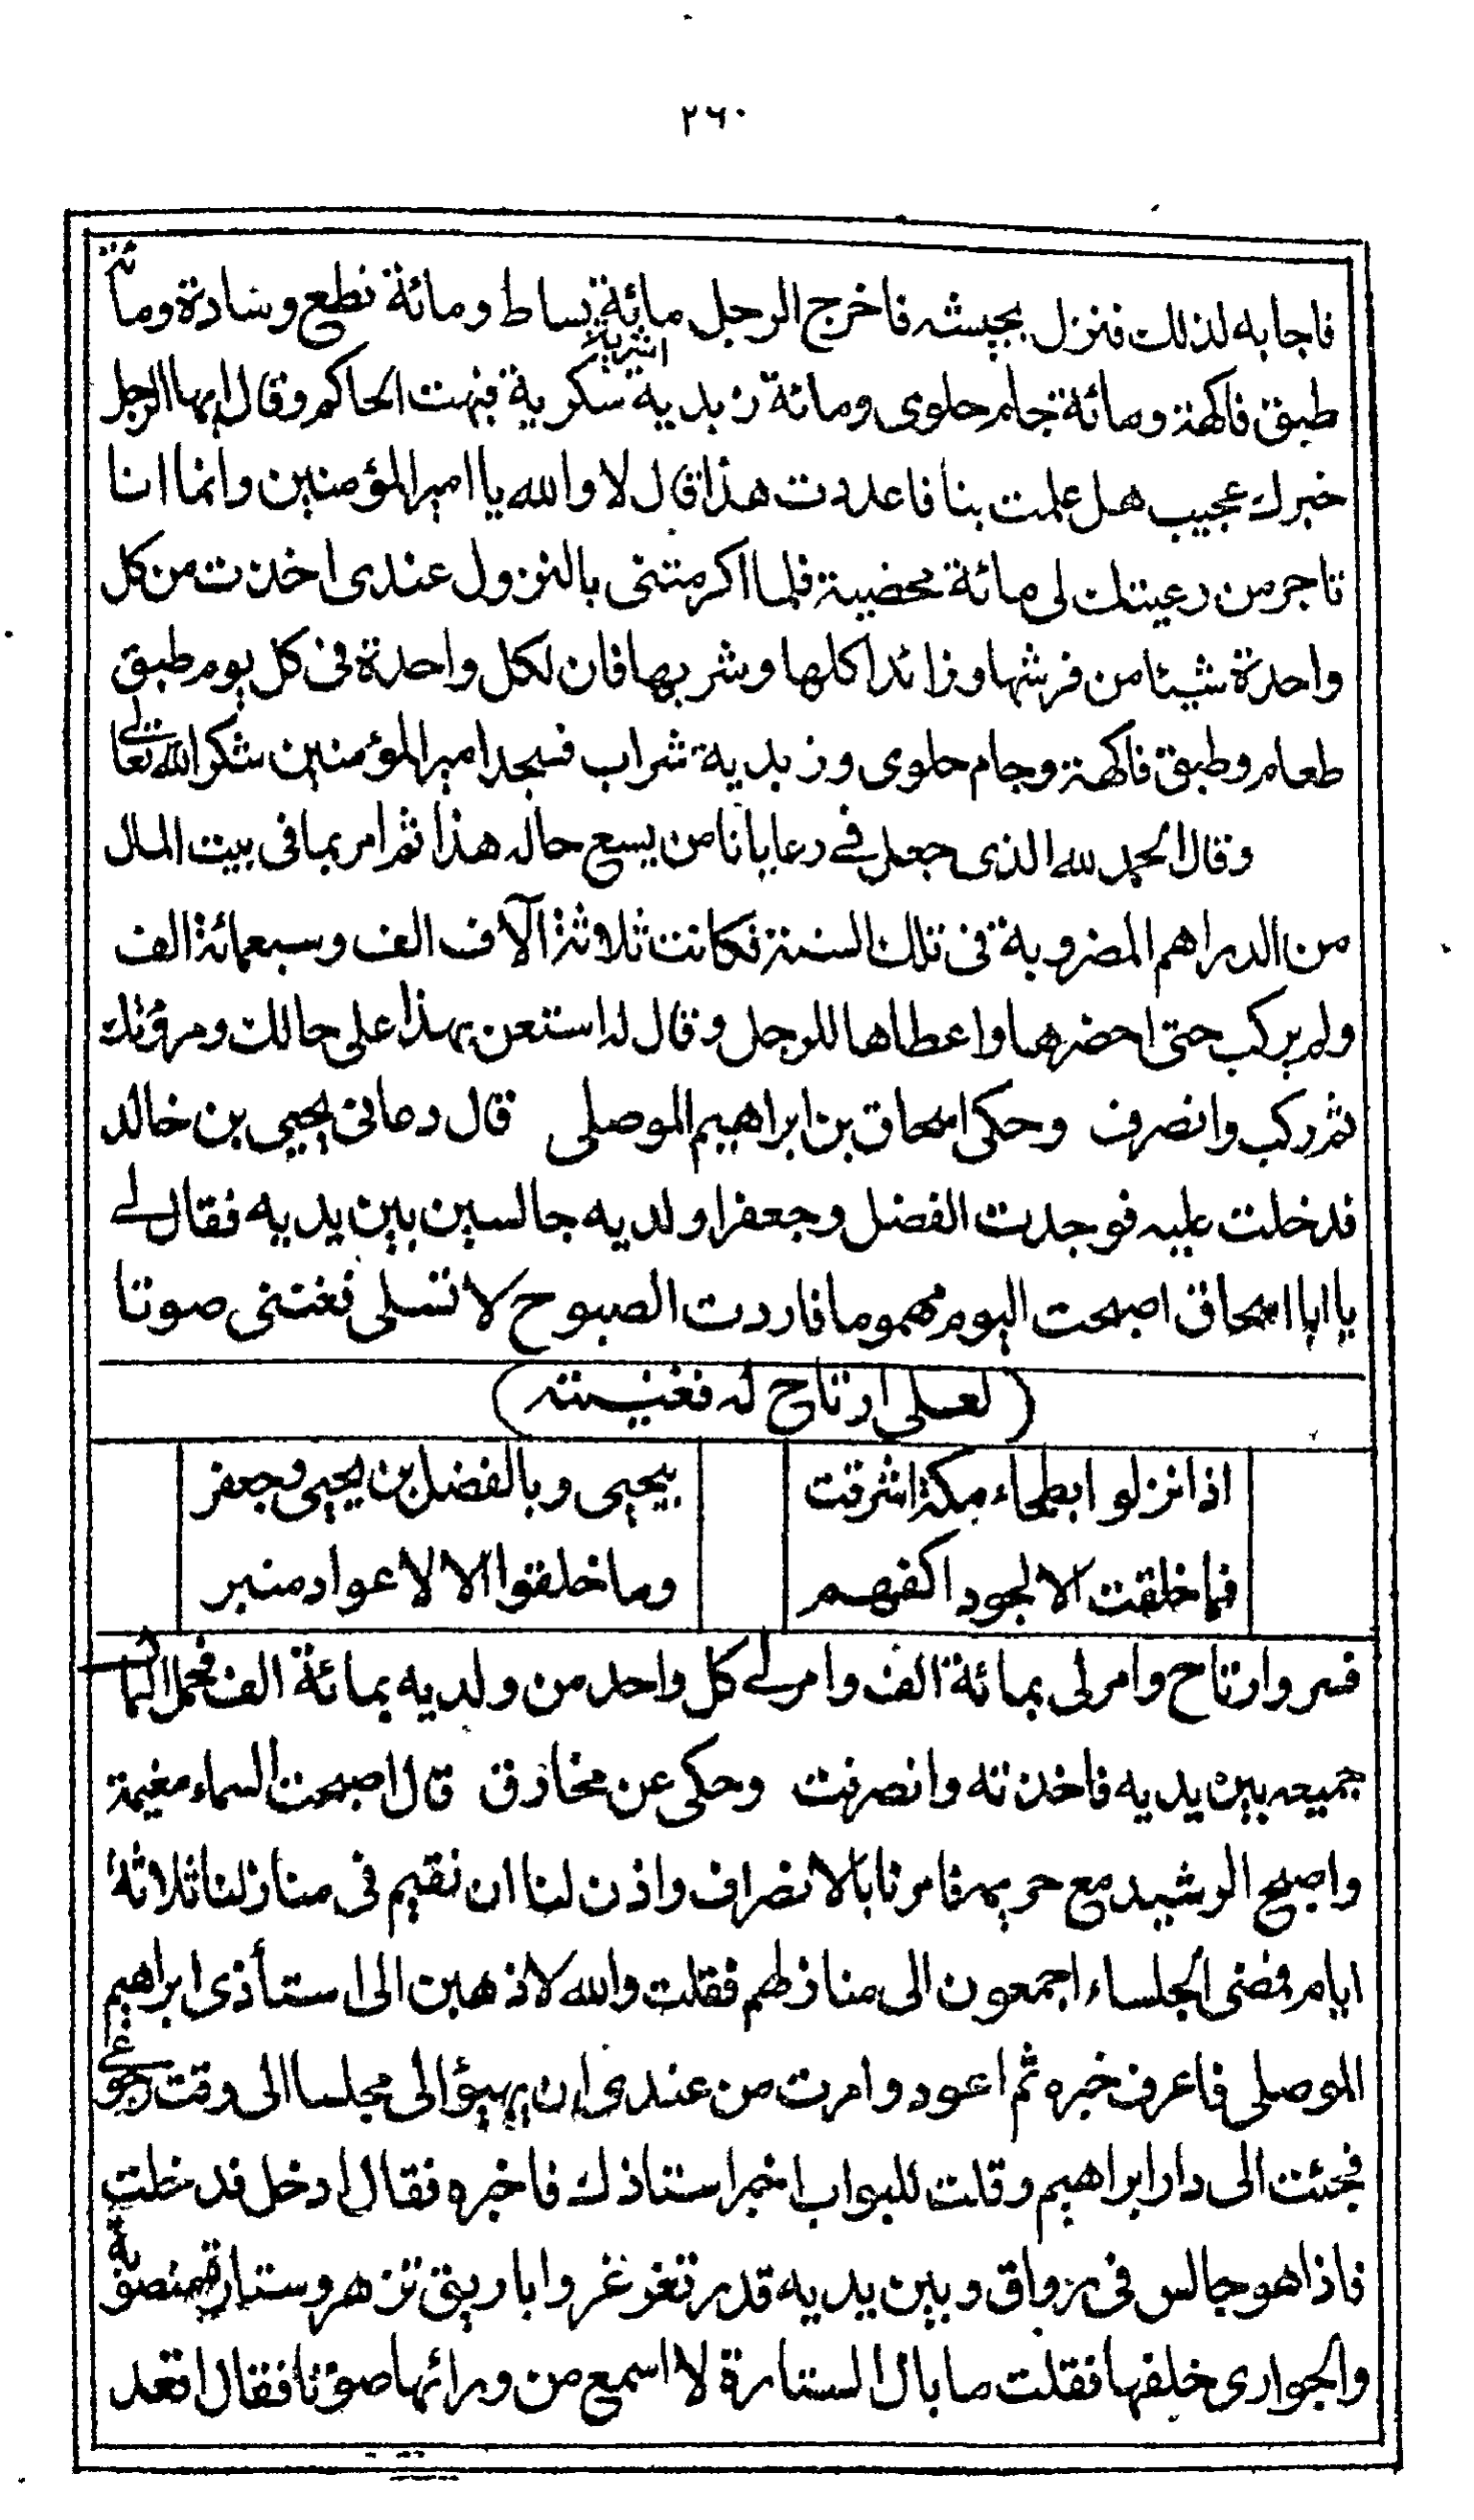 ٢٦٠
فاجابه لذلك فنزل بجيشه فاخرج الرجل مائة بساط ومائة نطع وسادة ومائة
اشربة
طبق فاكهة ومائة جام حلوى ومائة زبدية سكرية فبهت الحاكم وقال ايها الرجل
خبرك عجيب هل علمت بنا فاعددت هذا قال لا والله يا امير المؤمنين وانما انا
تاجر من رعيتك لى مائة محضية فلما اكرمتنى بالنزول عندى اخذت من كل
واحدة شيئا من فرشها وزائد اكلها وشربها فان لكل واحدة فى كل يوم طبق
طعام وطبق فاكهة وجام حلوى وزبدية شراب فسجد امير المؤمنين شكرا لله تعالى
وقال الحمد لله الذى جعل فى رعايانا من يسع حاله هذا ثم امر بما فى بيت المال
من الدراهم المضروبة فى تلك السنة فكانت ثلاثة آلاف الف وسبعمائة الف
ولم يركب حتى احضرها واعطاها للرجل وقال له استعن بهذا على حالك ومروتك
ثم ركب وانصرف وحكى اسحاق بن ابراهيم الموصلى قال دعانى يحيى بن خالد
فدخلت عليه فوجدت الفضل وجعفرا ولديه جالسين بين يديه فقال لى
يا ابا اسحاق اصبحت اليوم مهموما فاردت الصبوح لاتسلى فغننى صوتا
(لعلى ارتاح له فغنيته)
اذا نزلوا بطحاء مكة اشرقت بيحيى وبالفضل بن يحيى وجعفر
فما خلقت الا لجود اكفهم وما خلقوا الا لاعواد منبر
فسر وارتاح وامر لى بمائة الف وامر لى كل واحد من ولديه بمائة الف فحمل المال
جميعه بين يديه فاخذته وانصرفت وحكى عن مخارق قال اصبحت السماء مغيمة
واصبح الرشيد مع حريمه فامرنا بالانصراف واذن لنا ان نقيم فى منازلنا ثلاثة
ايام فمضى الجلساء اجمعون الى منازلهم فقلت والله لاذهبن الى استأذى ابراهيم
الموصلى فاعرف خبره ثم اعود وامرت من عندى ان يهيؤ الى مجلسا الى وقت رجوعى
فجئت الى دار ابراهيم وقلت للبواب اخبر استاذك فاخبره فقال ادخل فدخلت
فاذا هو جالس فى رواق وبين يديه قدر تغرغر واباريق تزهر وستارة منصوبة
والجوارى خلفها فقلت ما بال الستارة لا اسمع من ورائها صوتا فقال اقعد